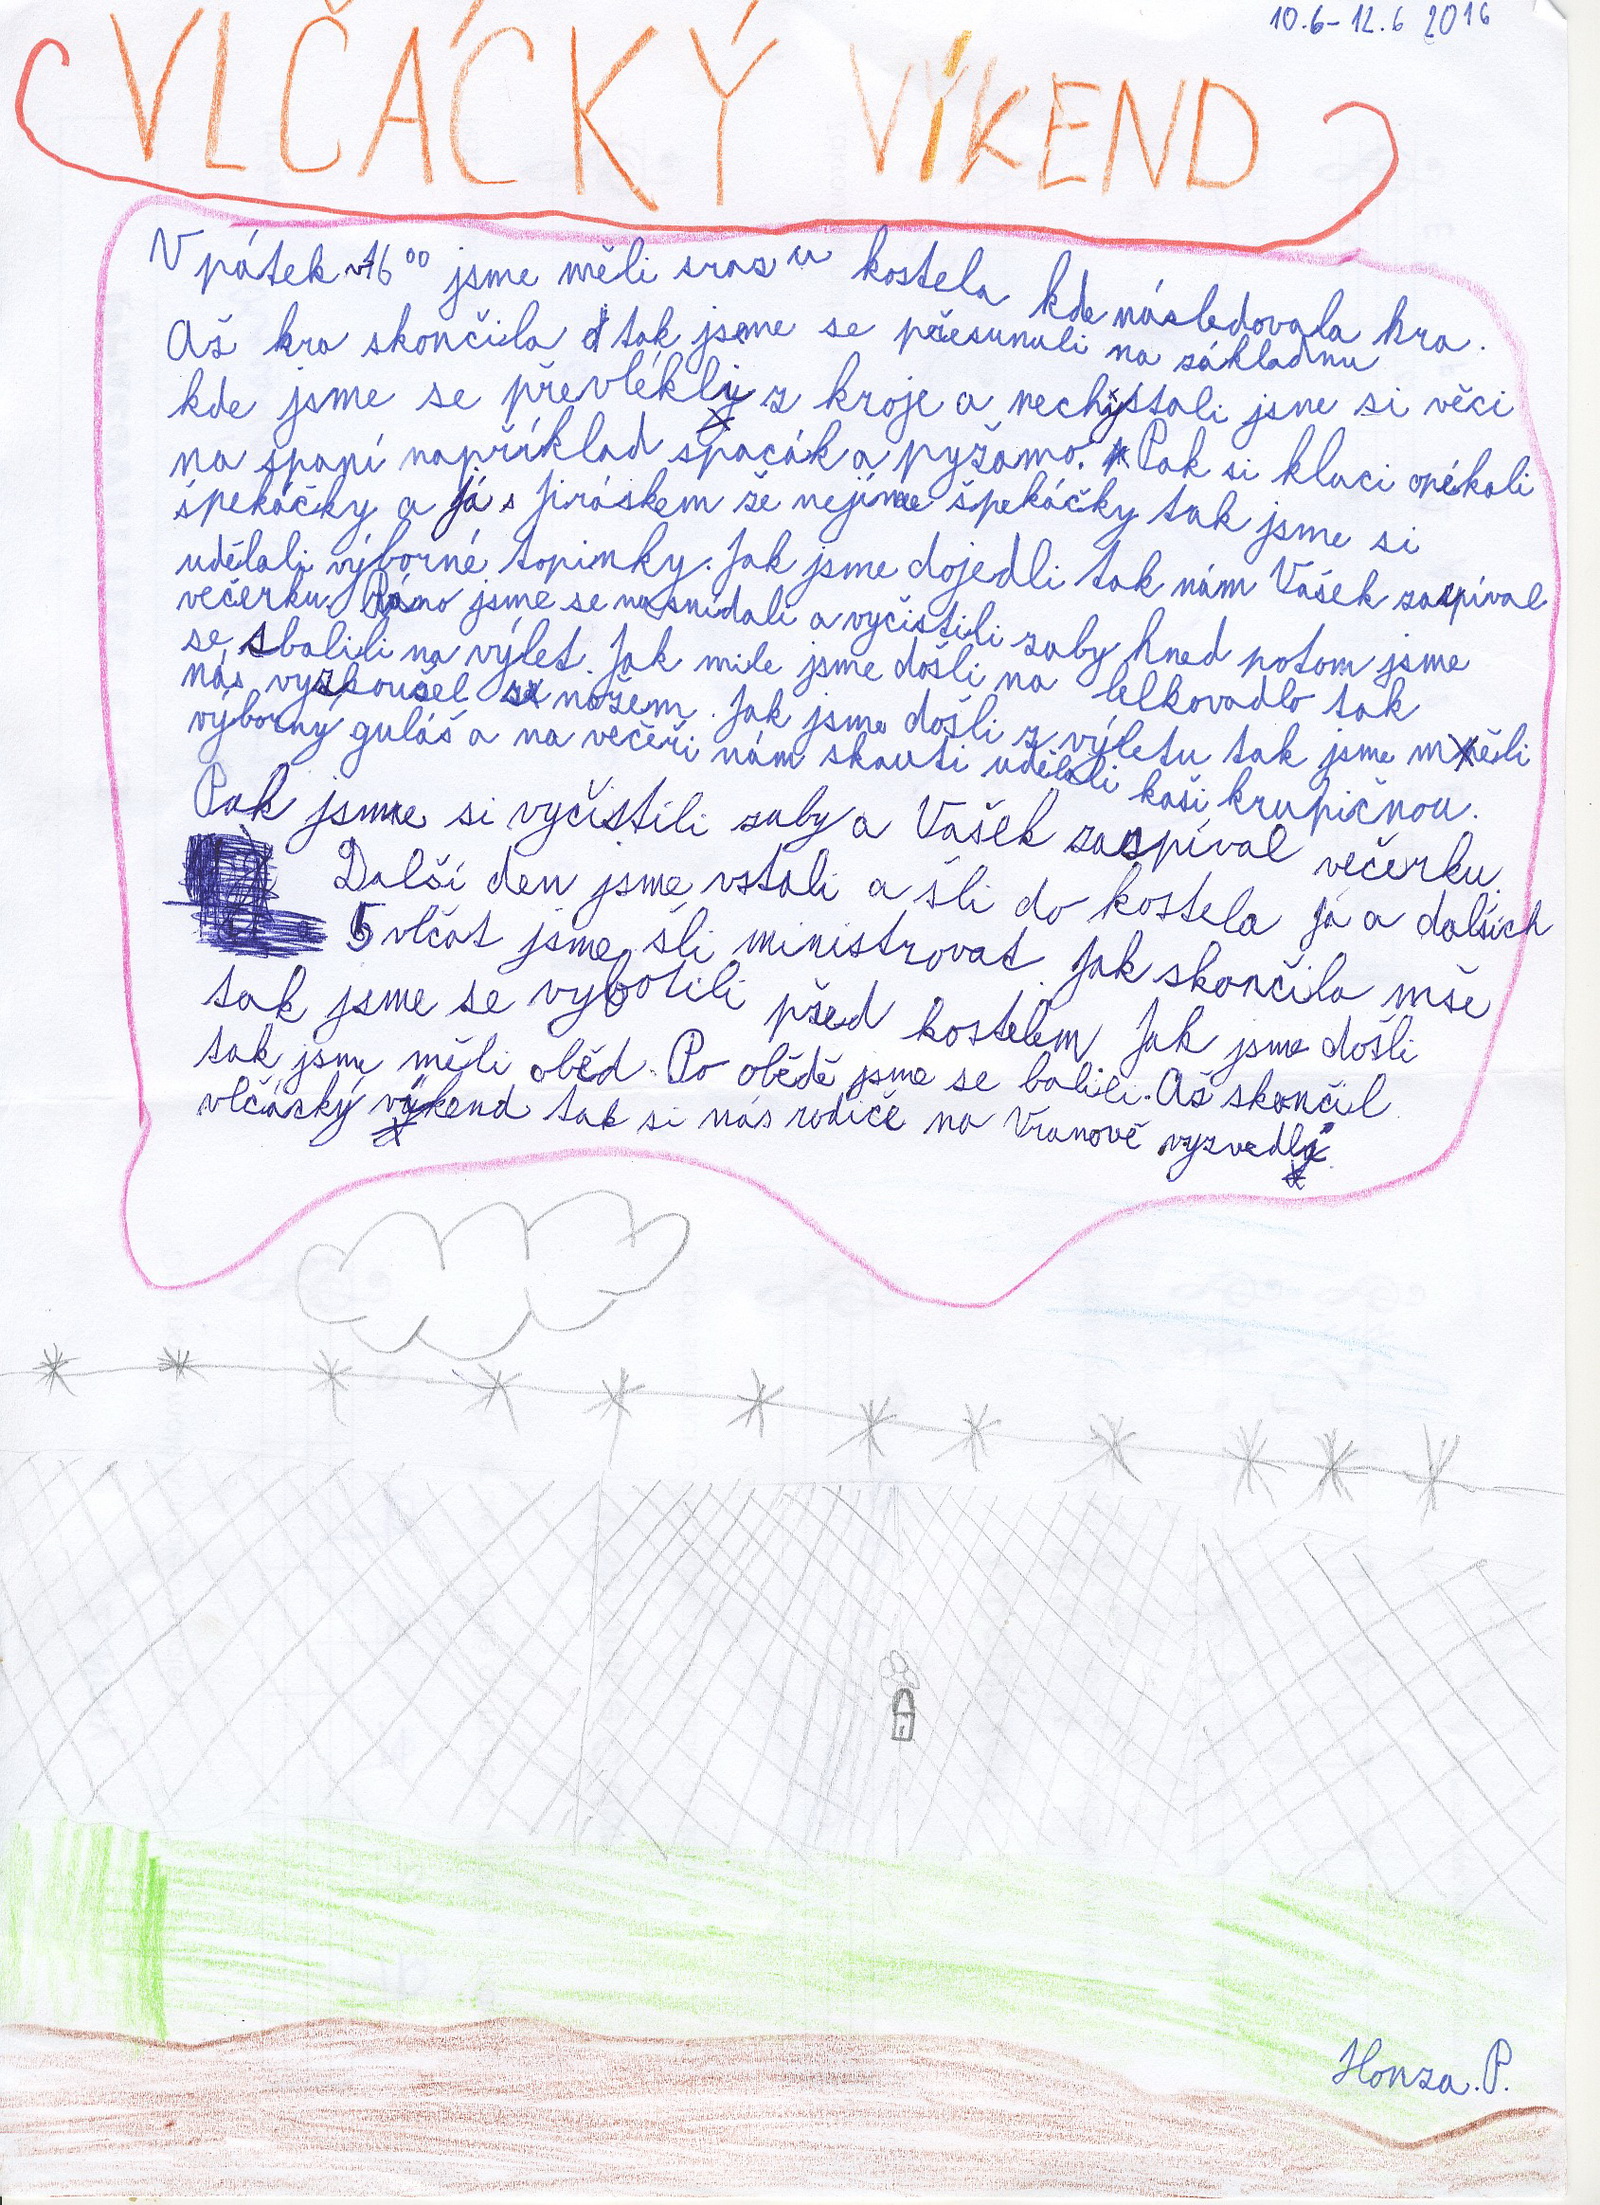 10.6-12.6 2016
VLČÁCKÝ VÍKEND
V pátek v 16⁰⁰ jsme měli sraz u kostela kde následovala hra.
Až hra skončila tak jsme se přesunuli na základnu
kde jsme se převlékli z kroje a nechystali jsme si věci
na spaní například spacák a pyžamo. Pak si kluci opékali
špekáčky a já s Jiráskem že nejíme špekáčky tak jsme si
udělali výborné topinky. Jak jsme dojedli tak nám Vašek zaspíval
večerku. Ráno jsme se nasnídali a vyčistili zuby hned potom jsme
se sbalili na výlet. Jak mile jsme došli na lelkovadlo tak
nás vyzkoušel nožem. Jak jsme došli z výletu tak jsme měli
výborny guláš a na večeři nám skauti udělali kaši krupičnou.
Pak jsme si vyčistili zuby a Vašek zaspíval večerku.
Další den jsme vstali a šli do kostela já a dalšich
5 vlčat jsme šli ministrovat. Jak skončila mše
tak jsme se vyfotili před kostelem. Jak jsme došli
tak jsme měli oběd. Po obědě jsme se balili. Až skončil
vlčácký víkend tak si nás rodiče na Vranově vyzvedli.
Honza.P.